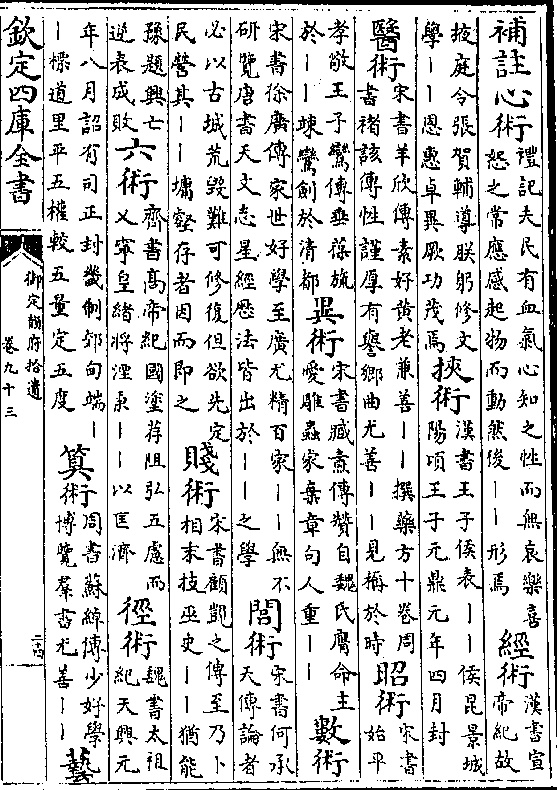 補註心術 禮記夫民有血氣心知之性而無哀樂喜
怒之常應感起物而動然後｜｜形焉 經術 漢書宣
帝紀故
掖庭令張賀輔導朕躬修文
學｜｜恩惠卓異厥功茂焉 挾術 漢書王子侯表｜｜侯昆景城
陽頃王子元鼎元年四月封
醫術 宋書羊欣傳素好黄老兼善｜｜撰藥方十卷周
書褚該傳性謹厚有譽鄉曲尤善｜｜見稱於時 昭術 宋書
始平
孝敬王子鸞傳垂葆旒
於｜｜竦鸞劍於清都 異術 宋書臧燾傳贊自魏氏膺命主
愛雕蟲家棄章句人重｜｜ 數術
宋書徐廣傳家世好學至廣尤精百家｜｜無不
研覽唐書天文志星經厯法皆出於｜｜之學 閭術 宋書何承
天傳論者
必以古城荒毁難可修復但欲先定
民營其｜｜墉壑存者因而即之 賤術 宋書顧凱之傳至乃卜
相末技巫史｜｜猶能
豫題興亡
逆表成敗 六術 齊書髙帝紀國塗荐阻弘五慮而
乂寧皇緒將湮秉｜｜以匡濟 徑術 魏書太祖
紀天興元
年八月詔有司正封畿制郊甸端｜
｜標道里平五權較五量定五度 算術 周書蘇綽傳少好學
博覽羣書尤善｜｜ 藝
欽定四庫全書
御定韻府拾遺
卷九十三